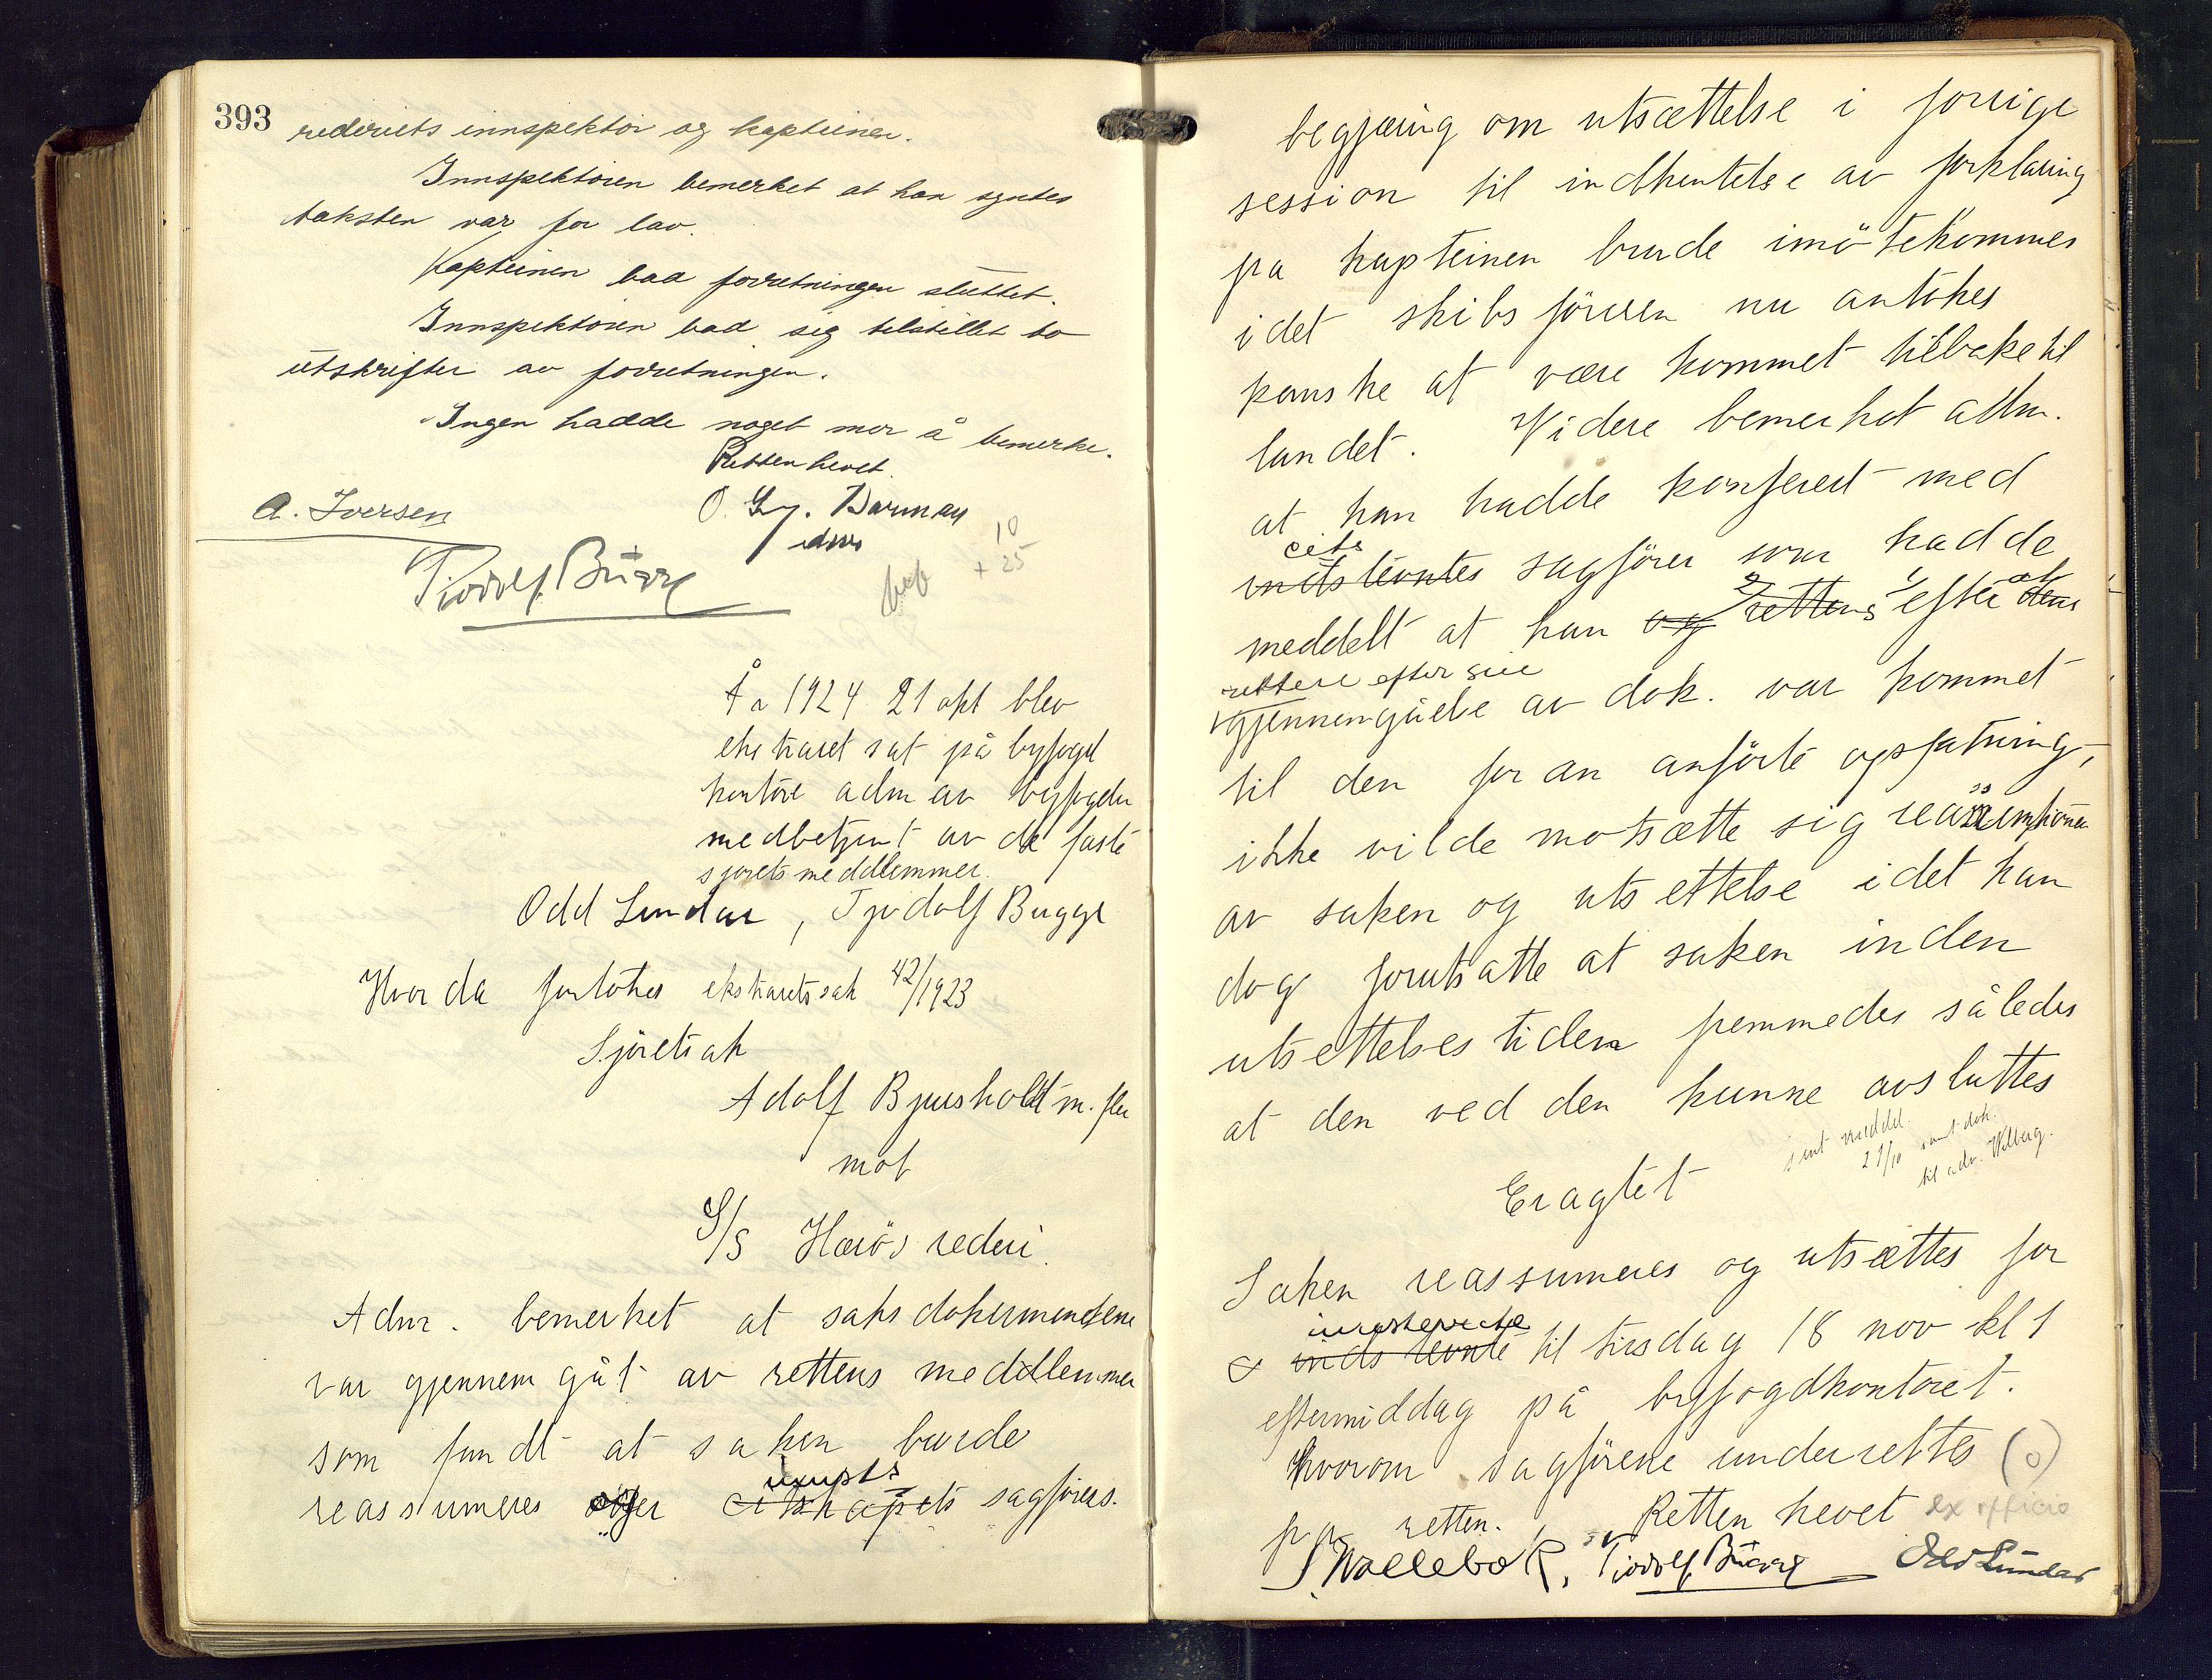 393
rederiets innspektör og kapteinen.
Innspektören bemerket at han syntes
taksten var for lav.
Kapteinen bad forretningen sluttet.
Innspektören bad sig tilstillet to
utskrifter av forretningen.
Ingen hadde noget mer å bemerke.
Retten hevet
A. Iversen
Tjodolf Bugge
10
+ 25
År 1924 21 okt blev
ekstraret sat på byfogd
kontoret adm av byfogden
medbetjent av de faste
sjörets meddlemmer.
Odd Lundar, Tjodolf Bugge
Hvor da foretokes ekstraretssak 42/1923
Sjöretsak
Adolf Bjusholdt m. fler
mot
S/S Herös rederi.
Adm. bemerket at saksdokumentene
var gjennemgåt av rettens meddlemmer
som fandt at saken burde
reassumeres og citskapets sagförers.
begjæring om utsættelse i forrige
session til indhentelse av forklaring
pa kapteinen burde imötekommes
idet skibsföreren nu antokes
kanske at være kommet tilbake til
landet. Videre bemerket adm.
at han hadde konferert med
cits
indstevntes sagförer som hadde
meddelt at han og rettens efter at den
rettere efter sin
gjennemgåelse av dok. var kommet
til den foran anförte opfatning,
ikke vilde motsætte sig reassumtionen
av saken og utsettelse idet han
dog forutsatte at saken inden
utsettelsestiden fremmedes således
at den ved den kunne avsluttes
sent meddel.
21/10 samt dok.
til adv. Wilberg.
Eragtet
Saken reassumeres og utsættes for
indstevnte til tirsdag 18 nov kl 1
eftermiddag på byfogdkontoret.
Hvorom sagförerne underrettes (o)
fra retten. Retten hevet ex officio
Tjodolf Bugge Odd Lundar